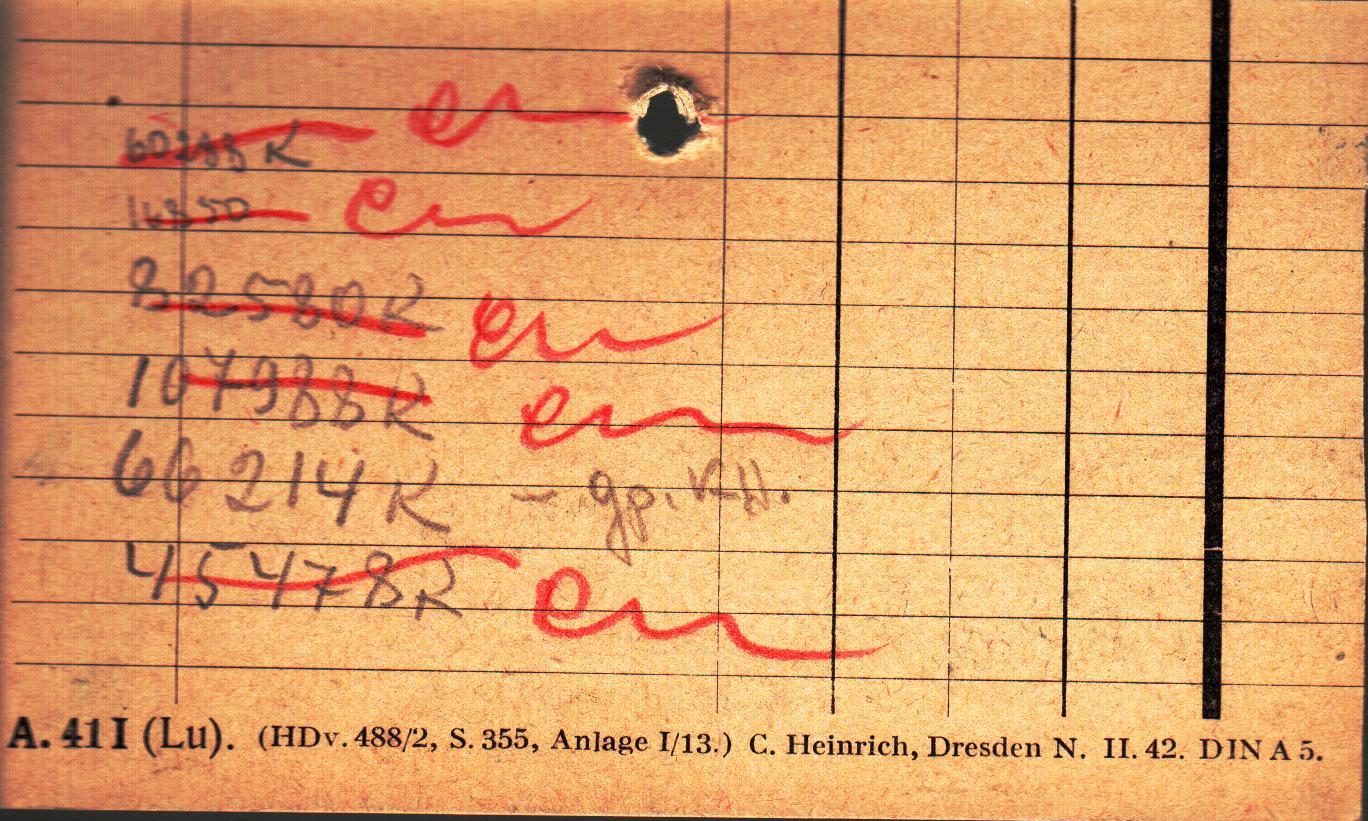 60283 K en
14350 en
82580 K en
107988 K en
66214 K – gp. KH.
45478 R en
A. 41 I (Lu). (HDv. 488/2, S. 355, Anlage I/13.) C. Heinrich, Dresden N. II. 42. DIN A 5.